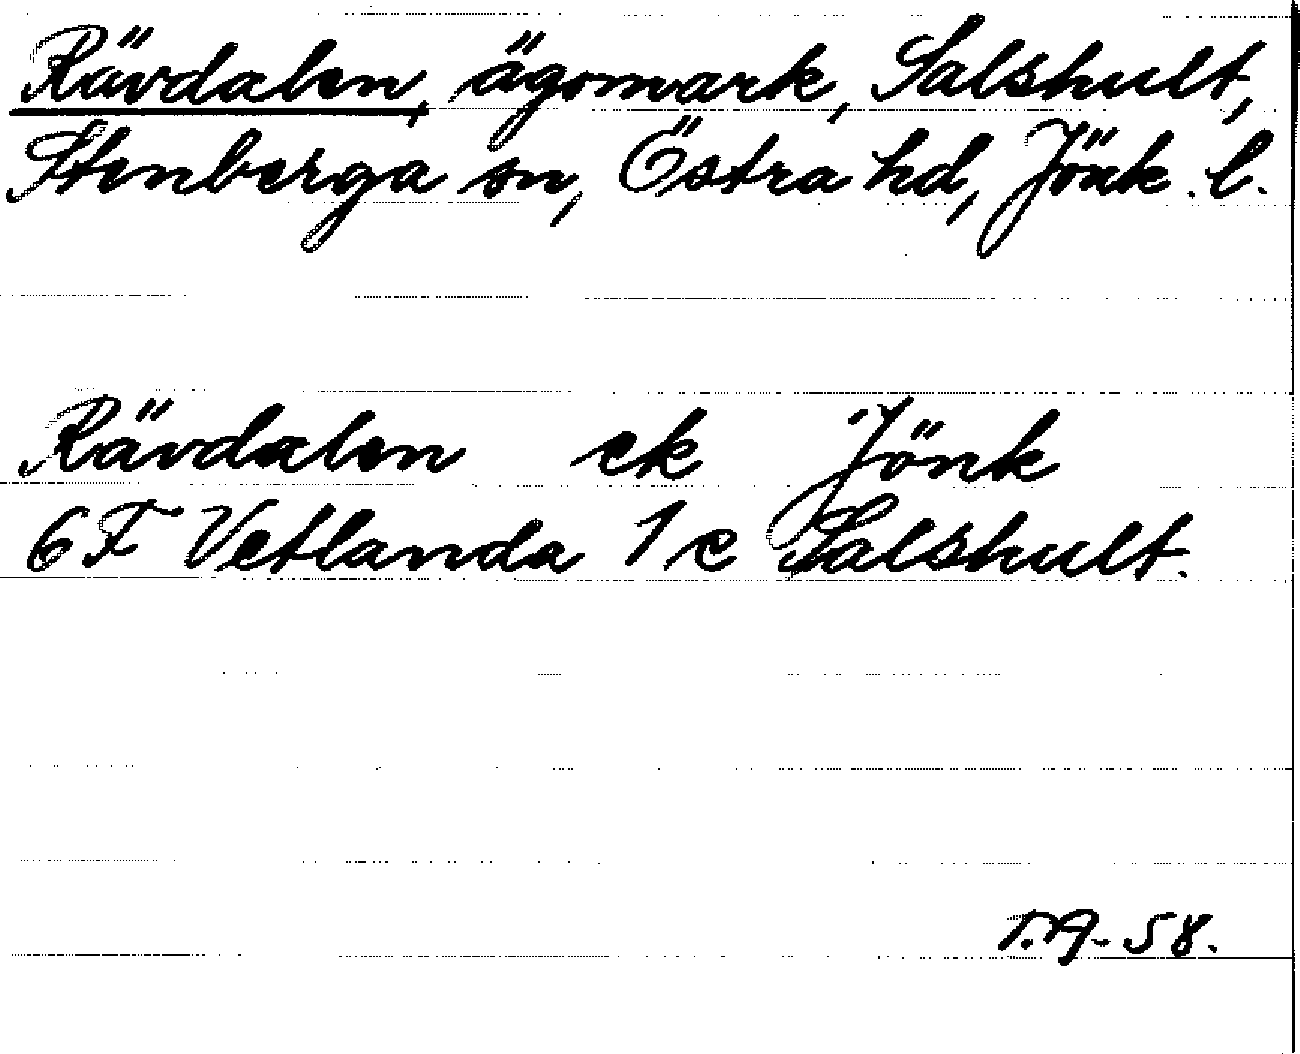 Rävdalen, ägomark, Salshult,
Stenberga sn, Östra hd, Jönk. l.
Rävdalen ek Jönk
6F Vetlanda 1 e Salshult.
T.A. 58.